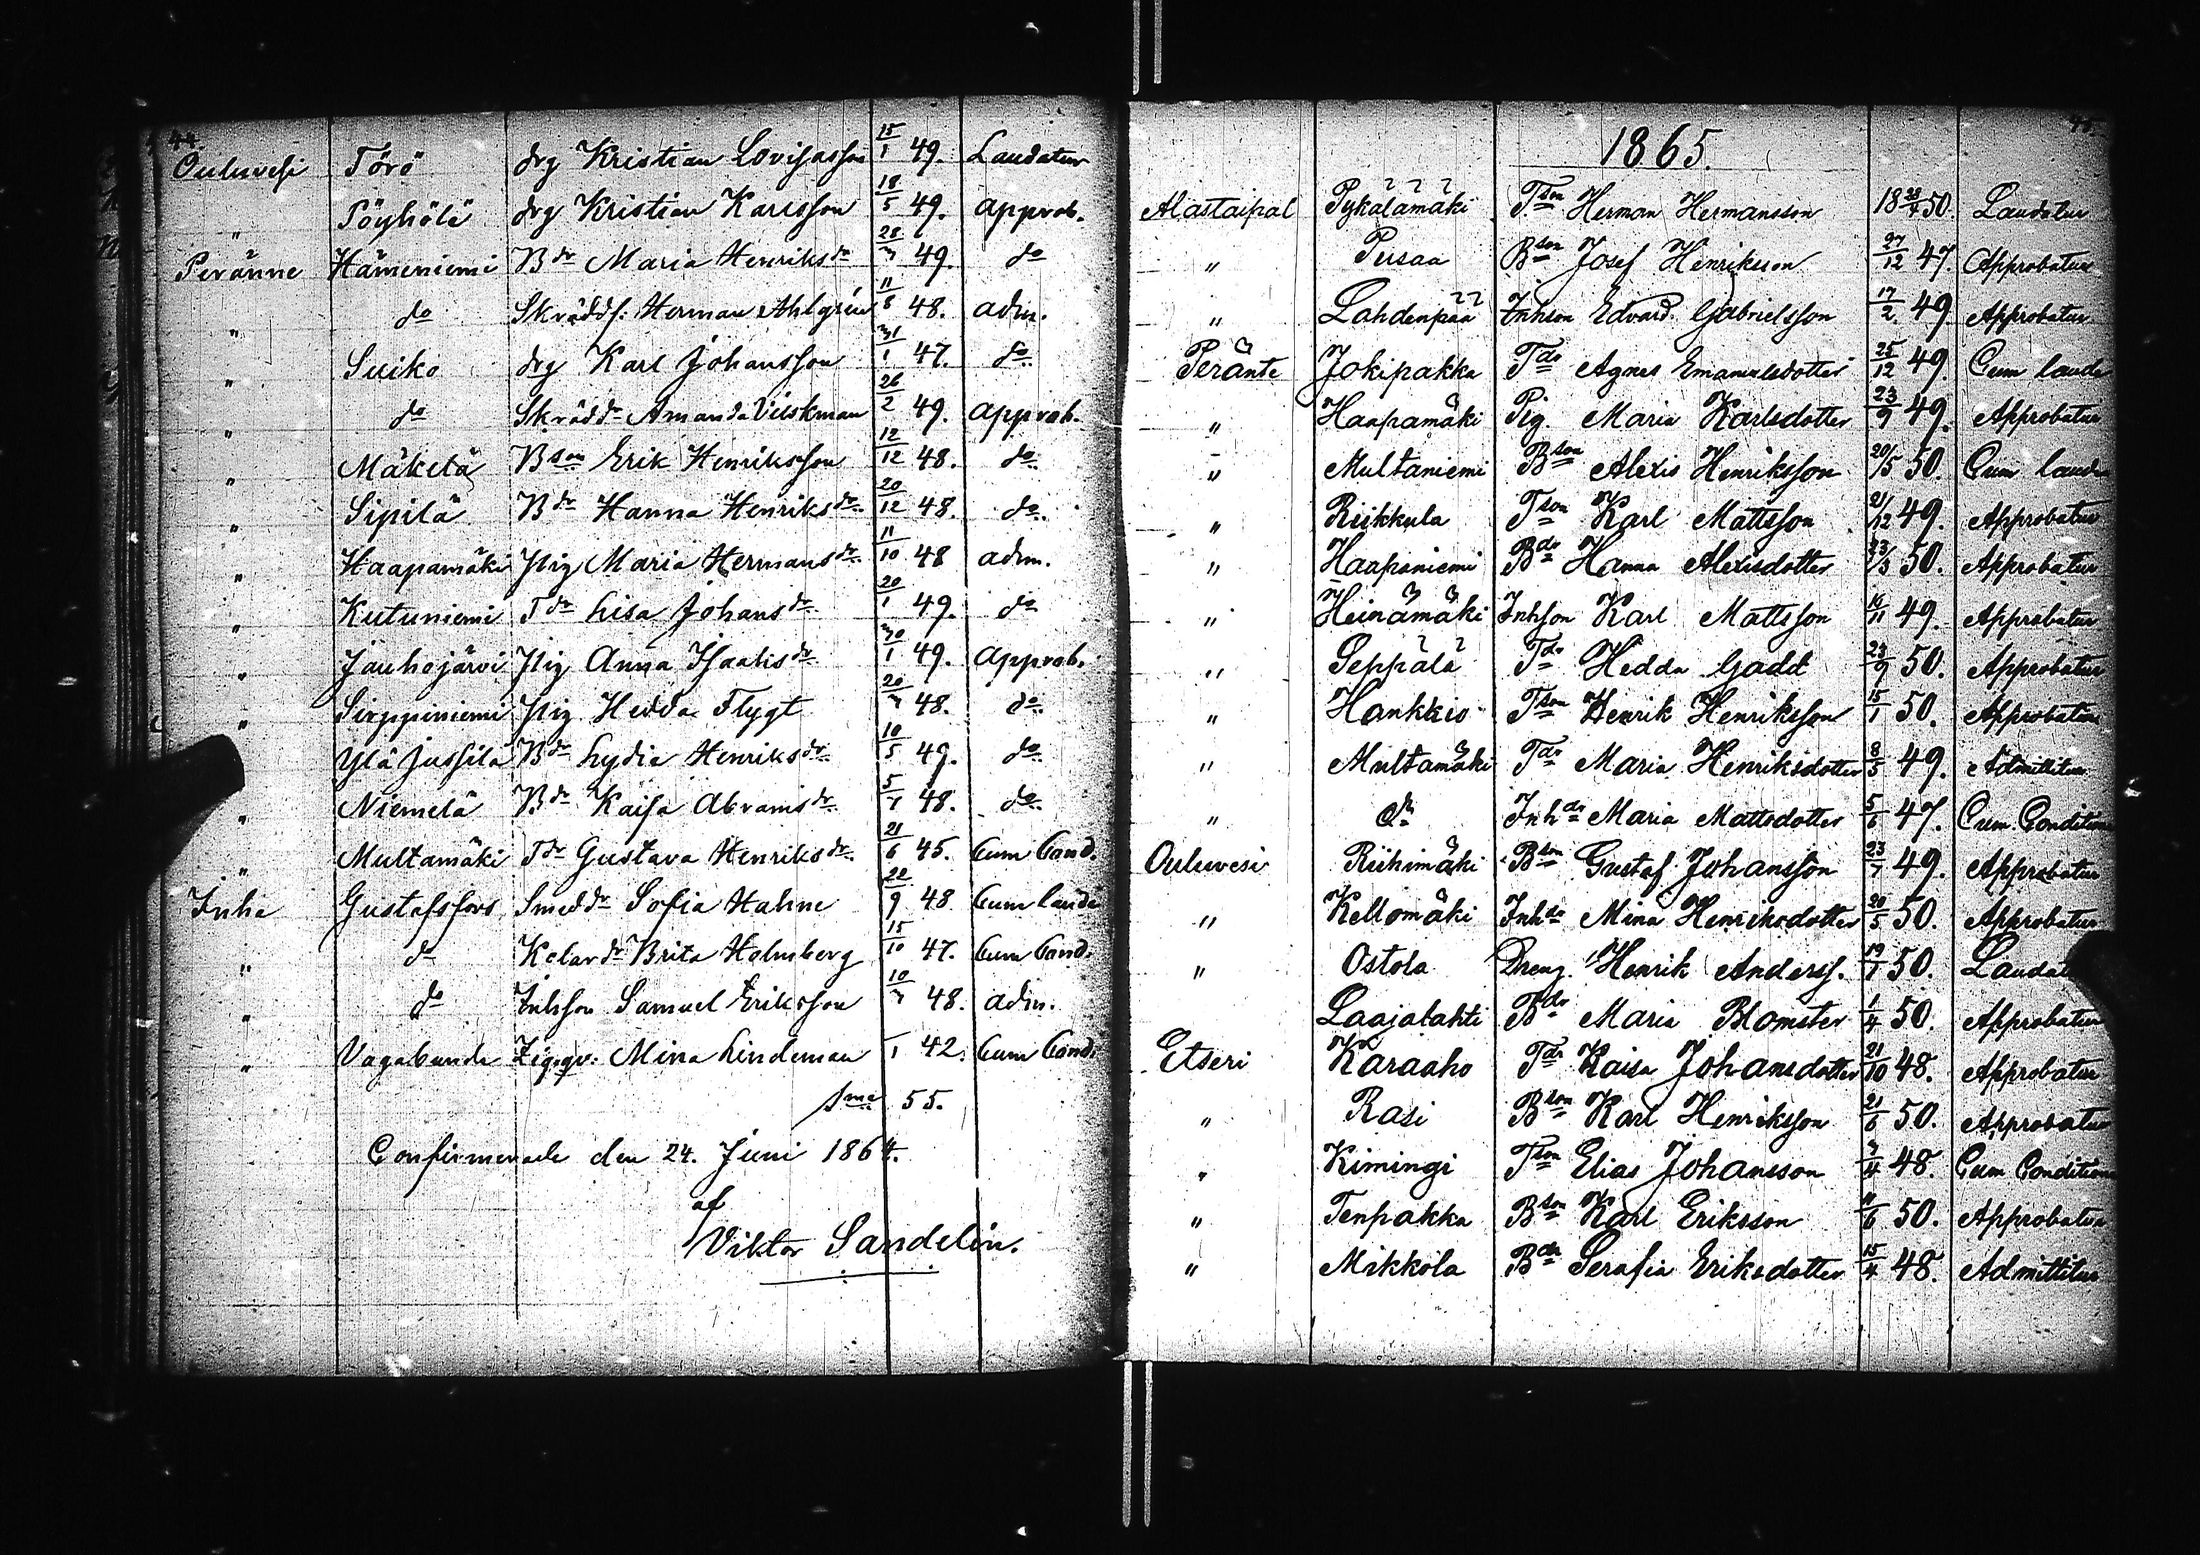 44.
Ouluvesi Törö drg Kristian Lovisasson 15/1 49. Laudatur
" Pöyhölä drg Kristian Karlsson 18/5 49. approb.
Peränne Hämeniemi Bdr Maria Henriksdr 28/3 49. do
" do Skrädds: Herman Ahlgrén 11/8 48. adm.
" Suiko drg Karl Johansson 31/1 47. do
" do Skräddr Amanda 26/2 49. approb.
" Mäkelä Bson Erik Henriksson 12/12 48. do
" Sipilä Bdr Hanna Henriksdr 20/12 48. do.
" Haapamäki Pig Maria Hermansdr 11/10 48 adm.
" Kutuniemi Tdr Lisa Johansdr 20/1 49. do
" Jauhojärvi Pig Anna Isaaksdr 30/1 49. approb.
" Sirppiniemi Pig Hedda Flygt 20/3 48. do
" Ylä Jussila Bdr Lydia Henriksdr 10/5 49. do
" Niemelä Bdr Kaisa Abramsdr 5/1 48. do
" Multamäki Tdr Gustava Henriksdr 21/6 45. Cum Cond.
Inha Gustafsfors Smeddr Sofia Hahne 22/9 48 Cum laude
" do Kolardr Brita Holmberg 15/10 47. Cum Cond.
" do Inhson Samuel Eriksson 10/3 48. adm.
" Vagabunde Zig.qv: Mina Lindeman /1 42. Cum Cond.
Sma 55.
Confirmerade den 24. Juni 1864.
af
Viktor Sandelin.
45.
1865.
Alastaipal Pykälämäki Tson Herman Hermansson 18 28/4 50. Laudatur
" Pusaa Bson Josef Henriksson 27/12 47. Approbatur
" Lahdenpää Inhson Edvard Gabrielsson 17/2 49. Approbatur
Peränte Jokipakka Tdr Agnes Emanuelsdotter 25/12 49. Cum laude
" Haapamäki Pig. Maria Karlsdotter 23/9 49. Approbatur
" Multaniemi Bson Alexis Henriksson 20/5 50. Cum laude
" Riikkula Tson Karl Mattsson 21/12 49. Approbatur
" Haapaniemi Bdr Hanna Alexisdotter 23/3 50. Approbatur
" Heinämäki Inhson Karl Mattsson 16/11 49. Approbatur
" Seppälä Tdr Hedda Gadd 23/9 50. Approbatur
" Hankkio Tson Henrik Henriksson 15/1 50. Approbatur
" Multamäki Tdr Maria Henriksdotter 8/5 49. Admittitur
" do Inhdr Maria Mattsdotter 5/6 47. Cum. Condition
Ouluvesi Riihimäki Bson Gustaf Johansson 23/7 49. Approbatur
" Kellomäki Inhdr Mina Henriksdotter 20/5 50. Approbatur
" Ostola Dreng. Henrik Anderss. 19/1 50. Laudat
Laajalahti Bdr Maria Blomster 1/4 50. Approbatur
Etseri Karaaho Tdr Kaisa Johansdotter 21/10 48. Approbatur
" Rasi Bson Karl Henriksson 21/6 50. Approbatur
" Kimingi Tson Elias Johansson 3/4 48. Cum Condition
" Tenpakka Bson Karl Eriksson 11/6 50. Approbatur
" Mikkola Bdr Serafia Eriksdotter 15/4 48. Admittitur